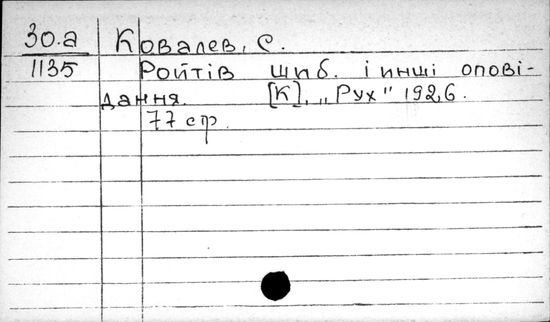 30.а Ковалев, С.
1135 Ройтів шиб. і инші опові-
дання. [К], „Рух" 1926.
77 стр.